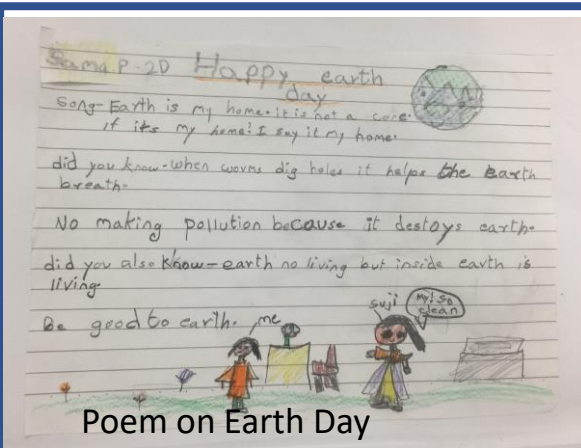 Sama.P-2D Happy earth
day
Song-Earth is my home. it is not a
if its my home! I say it my home.
did you know-when worms dig holes it helps the Earth
breath.
No making pollution because it destoys earth.
did you also know-earth no living but inside earth is
living.
Be good to earth.
me
suji
My! So
clean
Poem on Earth Day